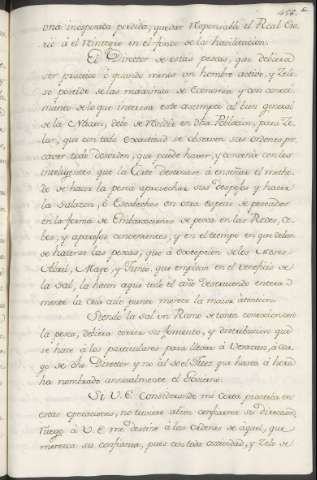 una inesperada perdida, quedar responsable el Real Era-
rio ó el Ministerio en el fondo de la habilitacion.
El Director de estas pescas, que debiera
ser practico ó quando menos un hombre activo, y zelo-
so poseido de las maximas de Economia y con conoci-
miento de lo que interesa este asumpto al bien general
de la Nacion, debe de residir en dha Poblacion, para ze-
lar, que con toda exactitud se observen sus ordenes pre-
caver todo desorden, que puede haver, y convenir con los
inteligentes que la Corte destinare á enseñar el metho-
do de hacer la pesca aprovechar sus despojos y hacer
la Salazon, ó Escabeches en otra especie de pescados
en la forma de Embarcaciones de pesca en las Redes, ce-
bos, y aparejos convenientes, y en el tiempo en que deban
de hacerse las pescas, que á excepcion de los Meses
Abril, Mayo y Junio, que emplean en el beneficio de
la Sal, lo hacen aqui todo el año descuidando entera-
mente la
Siendo la sal un Ramo de tanta conexion con
la pesca, debiera correr su fomento, y distribucion que
se hace á los particulares para llevar á Veracruz, á car-
go de dho Director y no al de el Juez que hasta á hora
ha nombrado annualmente el Govierno.
Si V. E. considerando mi corta practica en
estas operaciones, no tuviere á bien confiarme su direccion,
ruego á V. E. me destine á las ordenes de aquel, que
merezca su confianza, pues con toda actividad, y zelo de